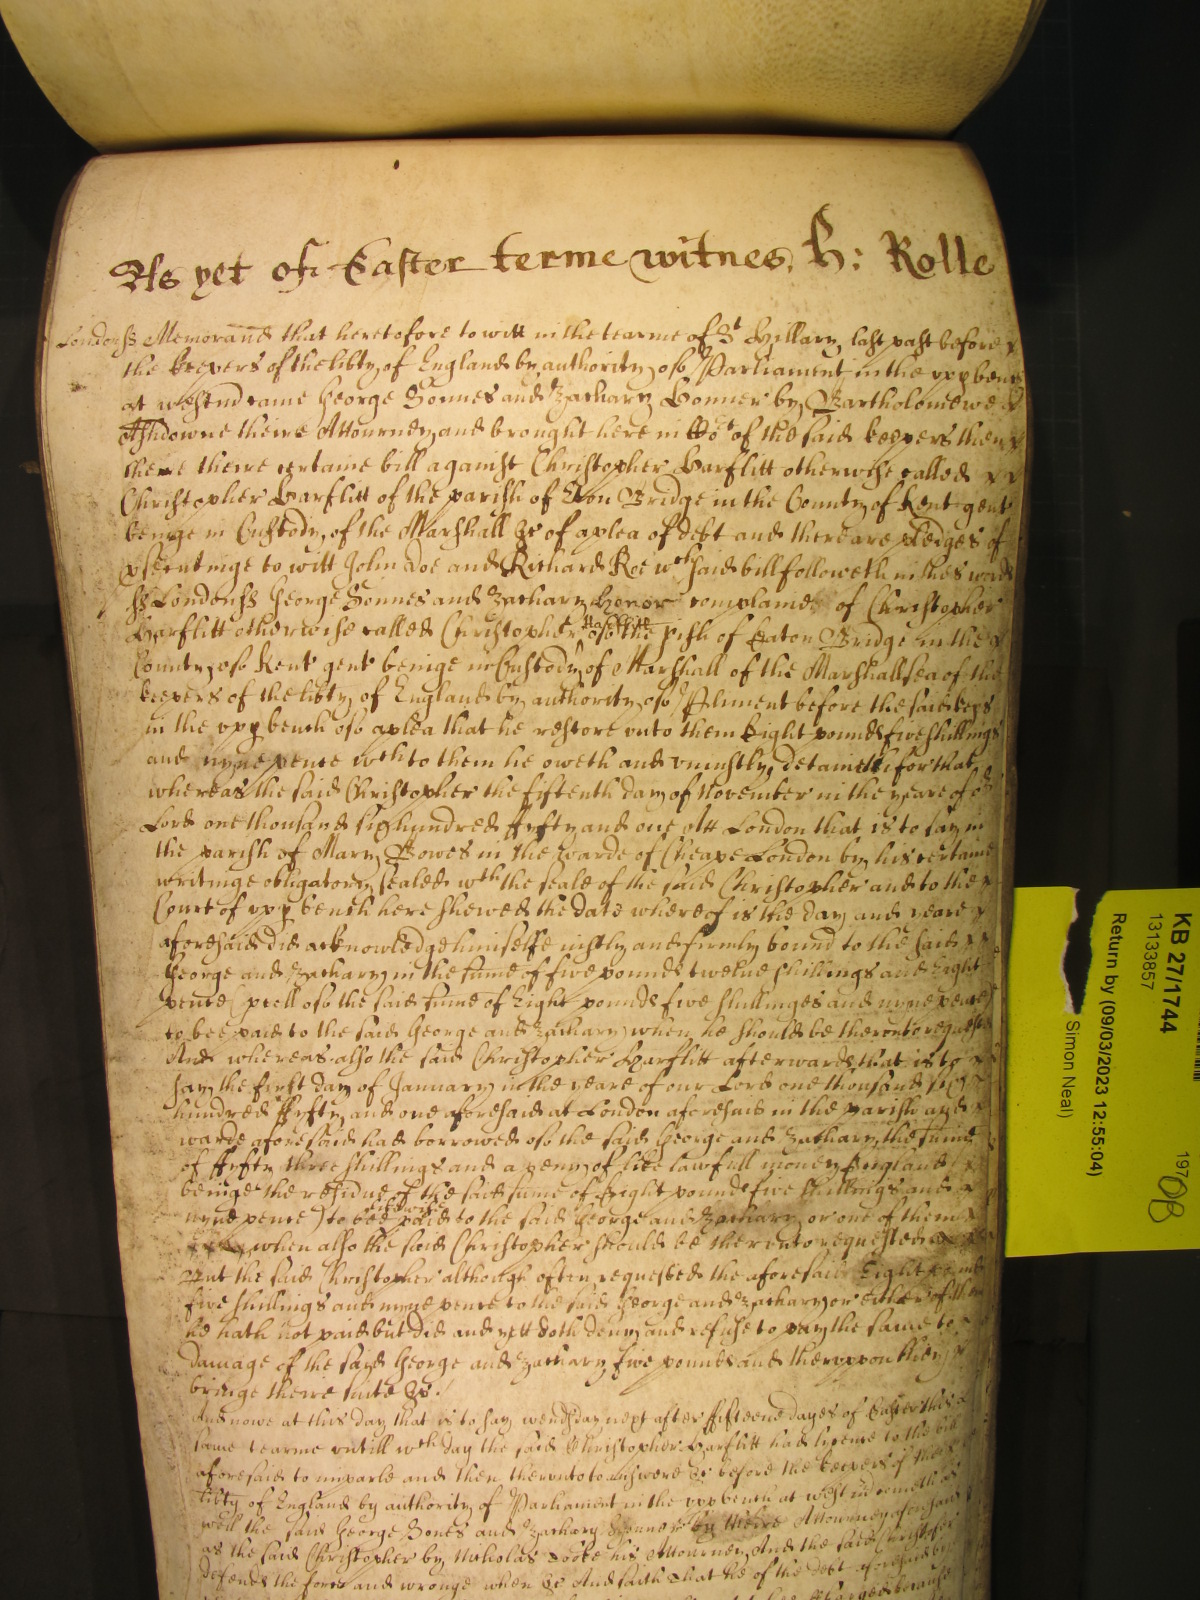 As yet of Easter terme witnes H: Rolle
Londonss Memorand that heretofore to witt in the tearme of St Hillary last past before
the keepers of the libty of England by authority of Parliament in the vpp bench
at westm came George Sonnes and Zachary Bonner by Bartholomewe
Ashdowne theire Attourney and brought here in the Cot of the said keepers then
there theire certaine bill against Christopher Harflitt otherwise called
Christopher Harflitt of the parish of Eton Bridge in the County of Kent gent
beinge in Custody of the Marshall &c of a plea of debt and there are pledges of
psecutinge to witt John Doe and Richard Roe wch said bill followeth in thes words
ss Londonss George Sonnes and Zachary Honor complaine of Christopher
Harflitt otherwise called Christopher Harflitt of the pish of Eaton Bridge in the
County of Kent gent beinge in Custody of Marshall of the Marshallsea of the
keepers of the libty of England by authority of Pliment before the said keeps
in the vpp bench of a plea that he restore vnto them Eight pounds five shillings
and nyne pence wch to them he oweth and vniustly detaineth for that
whereas the said Christopher the fifteenth day of November in the yeare of or
Lord one thousand six hundred fyfty and one Att London that is to say in
the parish of Mary Bowes in the warde of Cheape London by his certaine
writinge obligatory sealed wth the seale of the said Christopher and to the
Court of vpp bench here shewed the date whereof is the day and yeare
aforesaid did acknowledge himselfe iustly and firmly bound to the said
George and Zachary in the sume of five pounds twelue shillings and Eight
pence (pcell of the said sume of Eight pounds five shillinges and nyne pence)
to bee paid to the said George and Zachary when he should be therevnto requested
And whereas also the said Christopher Harflitt afterwards that is to
say the first day of January in the yeare of our Lord one thousand six
hundred fyfty and one aforesaid at London aforesaid in the parish and
warde aforesaid had borrowed of the said George and Zachary the sume
of fyfty three shillings and a penny of like lawfull money England
beinge the residue of the said sume of Eight pounds five shillings and
nyne pence) to bee likewise paid to the said George and Zachary or one of them
when also the said Christopher should be therevnto requested
But the said Christopher although often requested the aforesaid Eight pounds
five shillings and nyne pence to the said George and Zachary or either of them
he hath not paid but did and yett doth deny and refuse to pay the same to
damage of the said George and Zachary five pounds and therevppon they
bringe theire suite &c.
And nowe at this day that is to say wendsday next after fifteene dayes of Easter this
same tearme vntill wch day the said Christopher Harflitt had licence to the bill
aforesaid to imparle and then therevnto to answere &c before the keepers of the
libty of England by authority of Parliament in the vpp bench at westm cometh as
well the said George Sones and Zachary Bonner by theire Attourney aforesaid
as the said Christopher by Nicholas Cooke his Attourney And the said Christofer
defends the force and wronge when &c And saith that he of the debt aforesaid
KB 27/1744
13133857
Return by (09/03/2023 12:55:04)
Simon Neal)